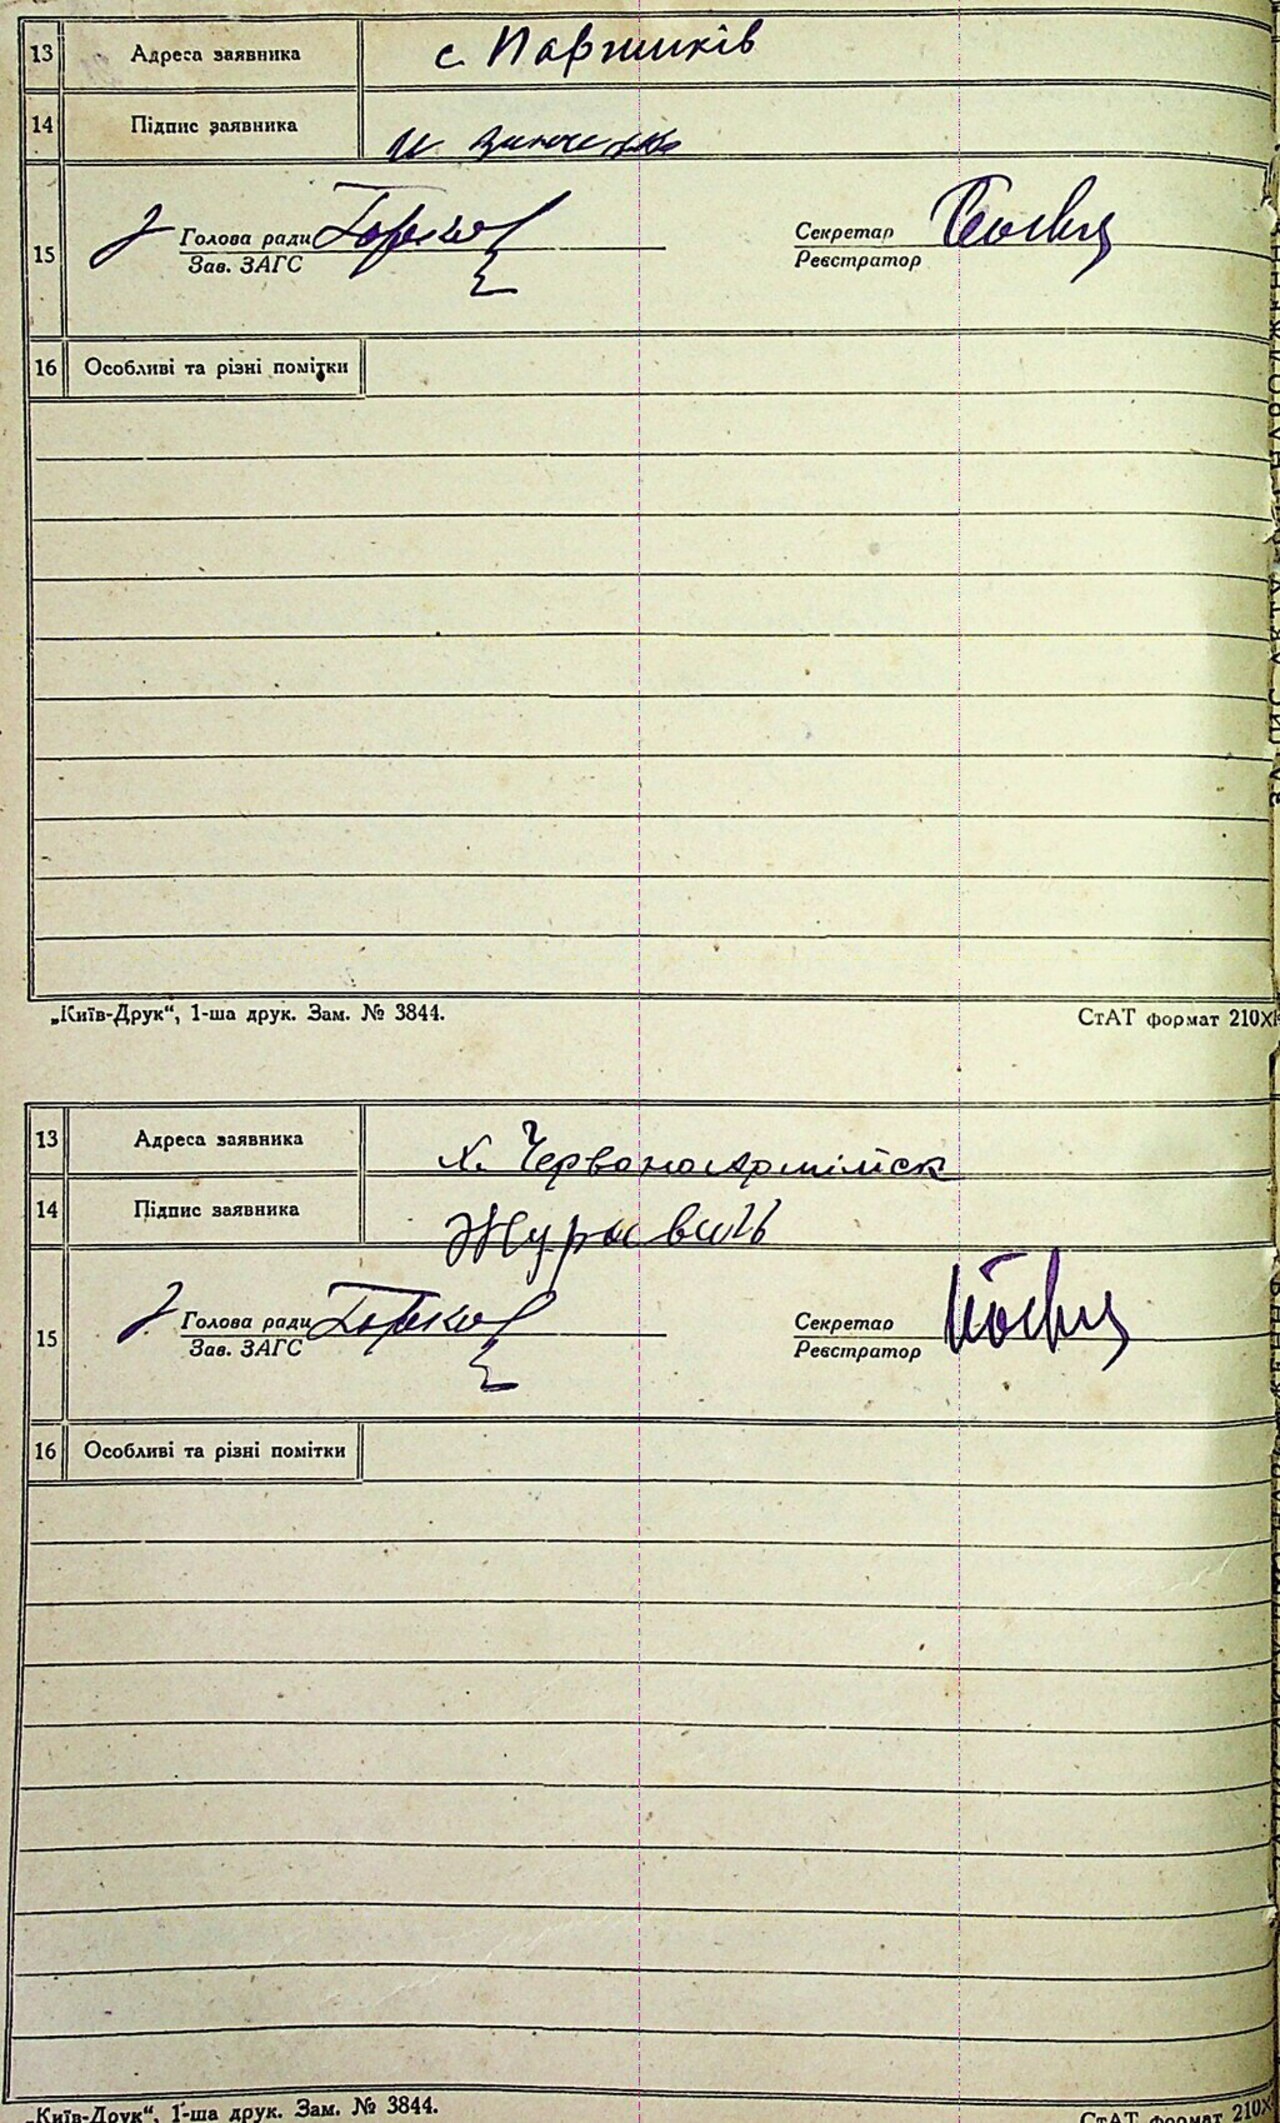 13 Адреса заявника с. Паршиків
14 Підпис заявника
15 Голова ради Секретар
Зав. ЗАГС Реєстратор
16 Особливі та різні помітки
„Київ-Друк“, 1-ша друк. Зам. № 3844. СтАТ формат 210Х
13 Адреса заявника х. Червоноармійск
14 Підпис заявника Журавель
15 Голова ради Секретар
Зав. ЗАГС Реєстратор
16 Особливі та різні помітки
„Київ-Друк“, 1-ша друк. Зам. № 3844. СтАТ формат 210Х